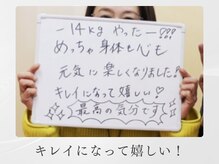 -14kg やったー!!!
めっちゃ身体も心も
元気に楽しくなりました!
キレイになって嬉しい♡
最高の気分です
キレイになって嬉しい!